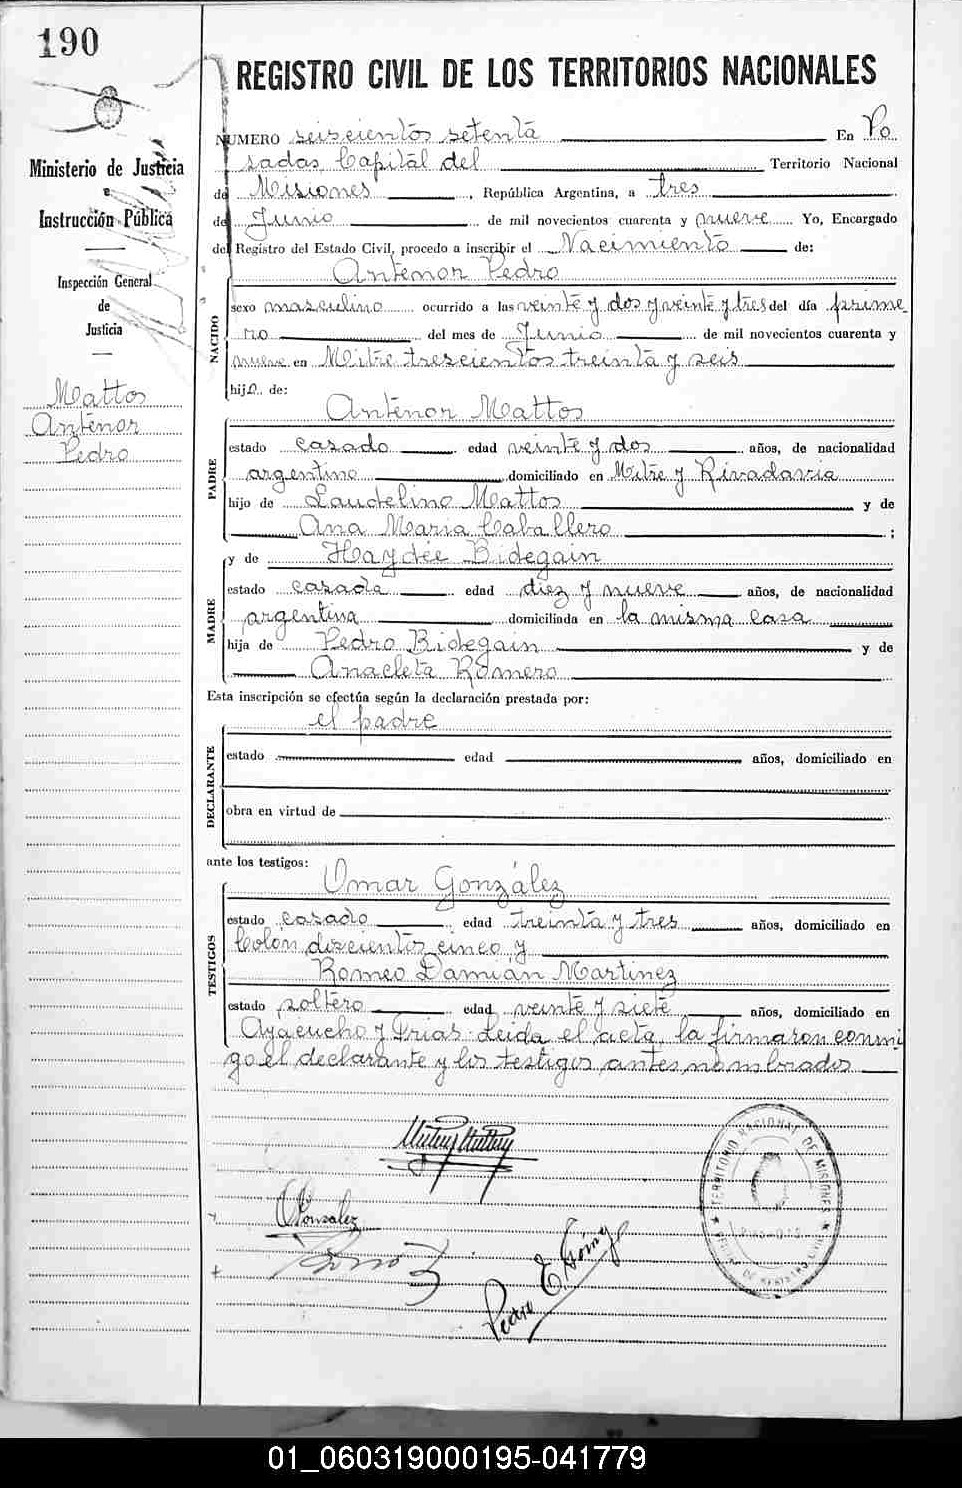 190
Ministerio de Justicia
e
Instrucción Pública
Inspección General
de
Justicia
Mattos
Antenor
Pedro
REGISTRO CIVIL DE LOS TERRITORIOS NACIONALES
NUMERO seiscientos setenta En Po
sadas Capital del Territorio Nacional
de Misiones, República Argentina, a tres
de Junio de mil novecientos cuarenta y nueve Yo, Encargado
del Registro del Estado Civil, procedo a inscribir el Nacimiento de:
NACIDO
Antenor Pedro
sexo masculino ocurrido a las veinte y dos y veinte y tres del día prime
ro del mes de Junio de mil novecientos cuarenta y
nueve en Mitre trescientos treinta y seis
hijo de:
PADRE
Antenor Mattos
estado casado edad veinte y dos años, de nacionalidad
argentino domiciliado en Mitre y Rivadavia
hijo de Laudelino Mattos y de
Ana María Caballero ;
MADRE
y de Haydée Bidegain
estado casada edad diez y nueve años, de nacionalidad
argentina domiciliada en la misma casa
hija de Pedro Bidegain y de
Anacleta Romero
Esta inscripción se efectúa según la declaración prestada por:
DECLARANTE
el padre
estado edad años, domiciliado en
obra en virtud de
ante los testigos:
TESTIGOS
Omar González
estado casado edad treinta y tres años, domiciliado en
Colón doscientos cinco y
Romeo Damián Martinez
estado soltero edad veinte y siete años, domiciliado en
Ayacucho y Frias. Leida el acta, la firmaron conmi
go el declarante y los testigos antes nombrados
O Gonzalez
Pedro E.
TERRITORIO NACIONAL DE MISIONES
01_060319000195-041779